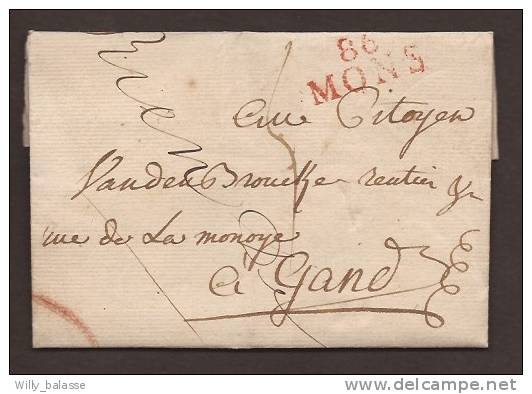 86
MONS
Citoyen
Vanden Broucke rentier
rue de La monoye
à Gand
Willy_balasse
delcampe.net